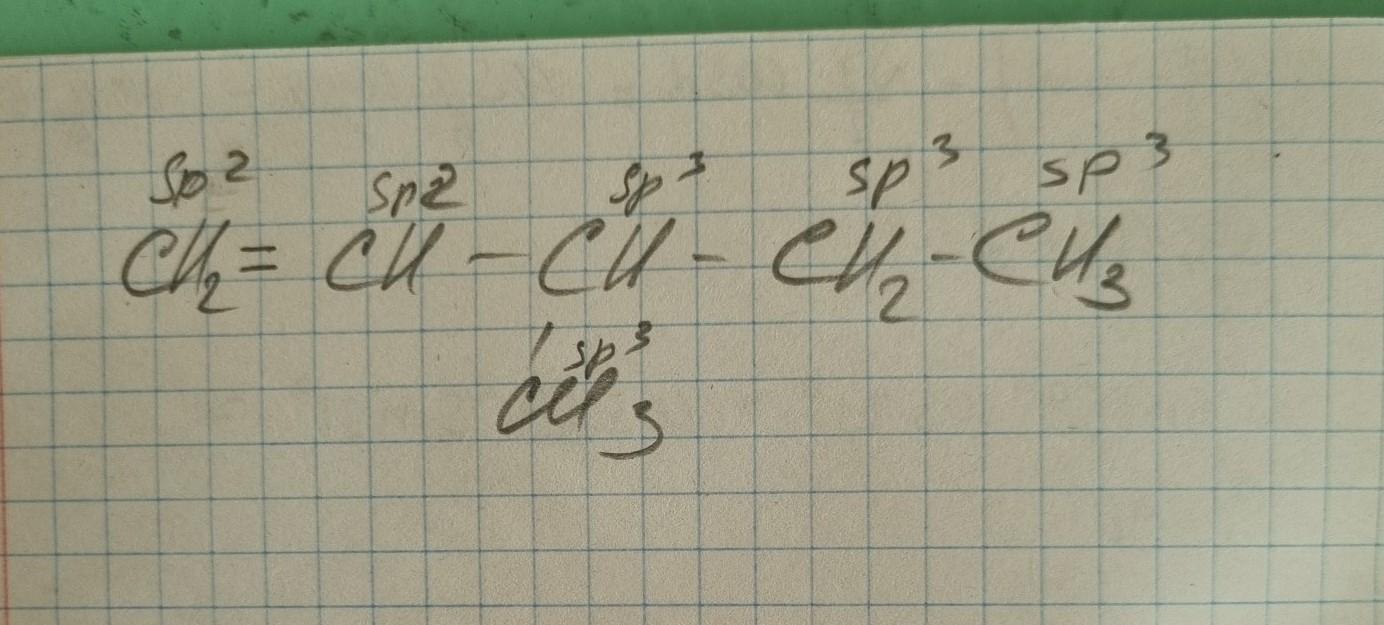 sp² sp2 sp³ sp³ sp³
CH₂ = CH - CH - CH₂ - CH₃
/ sp³
CH₃